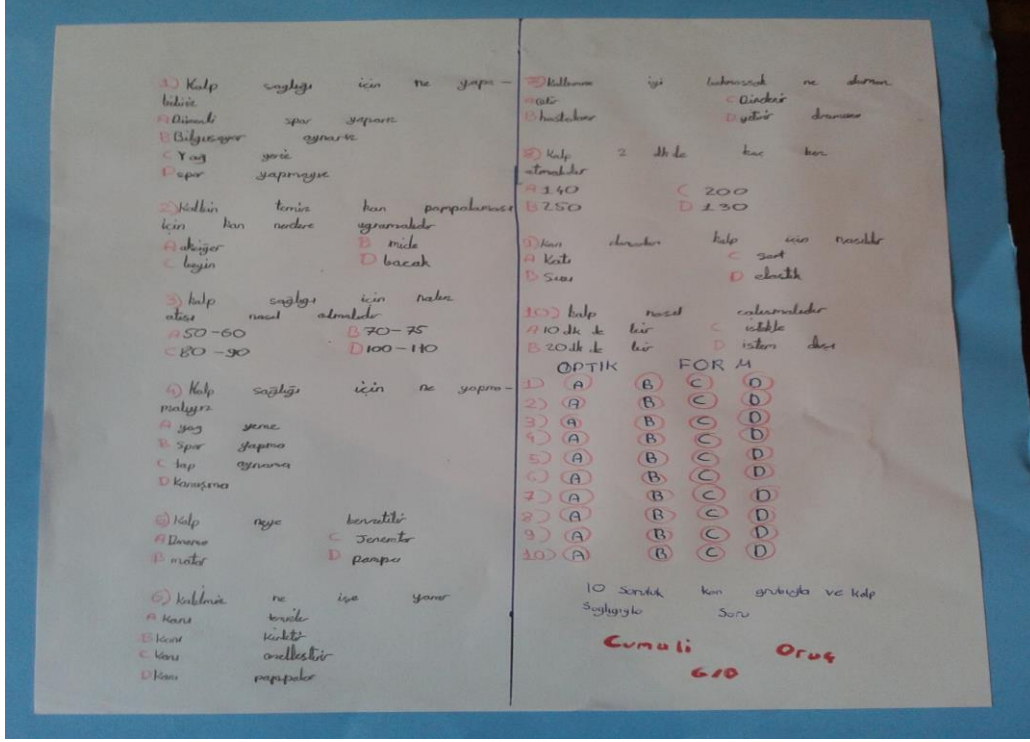 1) Kalp sağlığı için ne yapa-
biliriz
A Düzenli spor yaparız
B Bilgisayar oynarız
C Yağ yeriz
D spor yapmayız
2) Kalbin temiz kan pompalaması
için kan nerdere uğramalıdır
A akciğer B mide
C beyin D bacak
3) kalp sağlığı için nabız
atışı nasıl olmalıdır
A 50-60 B 70-75
C 80-90 D 100-110
4) Kalp sağlığı için ne yapma-
malıyız
A yağ yeme
B Spor yapma
C top oynama
D Konuşma
5) Kalp neye benzetilir
A Dinamo C Jenemtor
B motor D pompa
6) kalbimiz ne işe yarar
A Kanı temizler
B kanı kirletir
C kanı özelleştirir
D Kanı pompalar
7) Kalbimize iyi bakmassak ne
A C Dinclenir
B hastalanır D
8) Kalp 2 dk da kaç kez
atmalıdır
A 140 C 200
B 250 D 130
9) kan damarları kalp için nasıldır
A Katı C sert
D Sıvı D elastik
10) kalp nasıl calışmalıdır
A 10 dk de bir C istekle
B 20 dk de bir D istem dışı
OPTIK FORM
1) A B C D
2) A B C D
3) A B C D
4) A B C D
5) A B C D
6) A B C D
7) A B C D
8) A B C D
9) A B C D
10) A B C D
10 Soruluk kan grubuyla ve kalp
Sağlığıyla Soru
Cumali Oruç
6/D